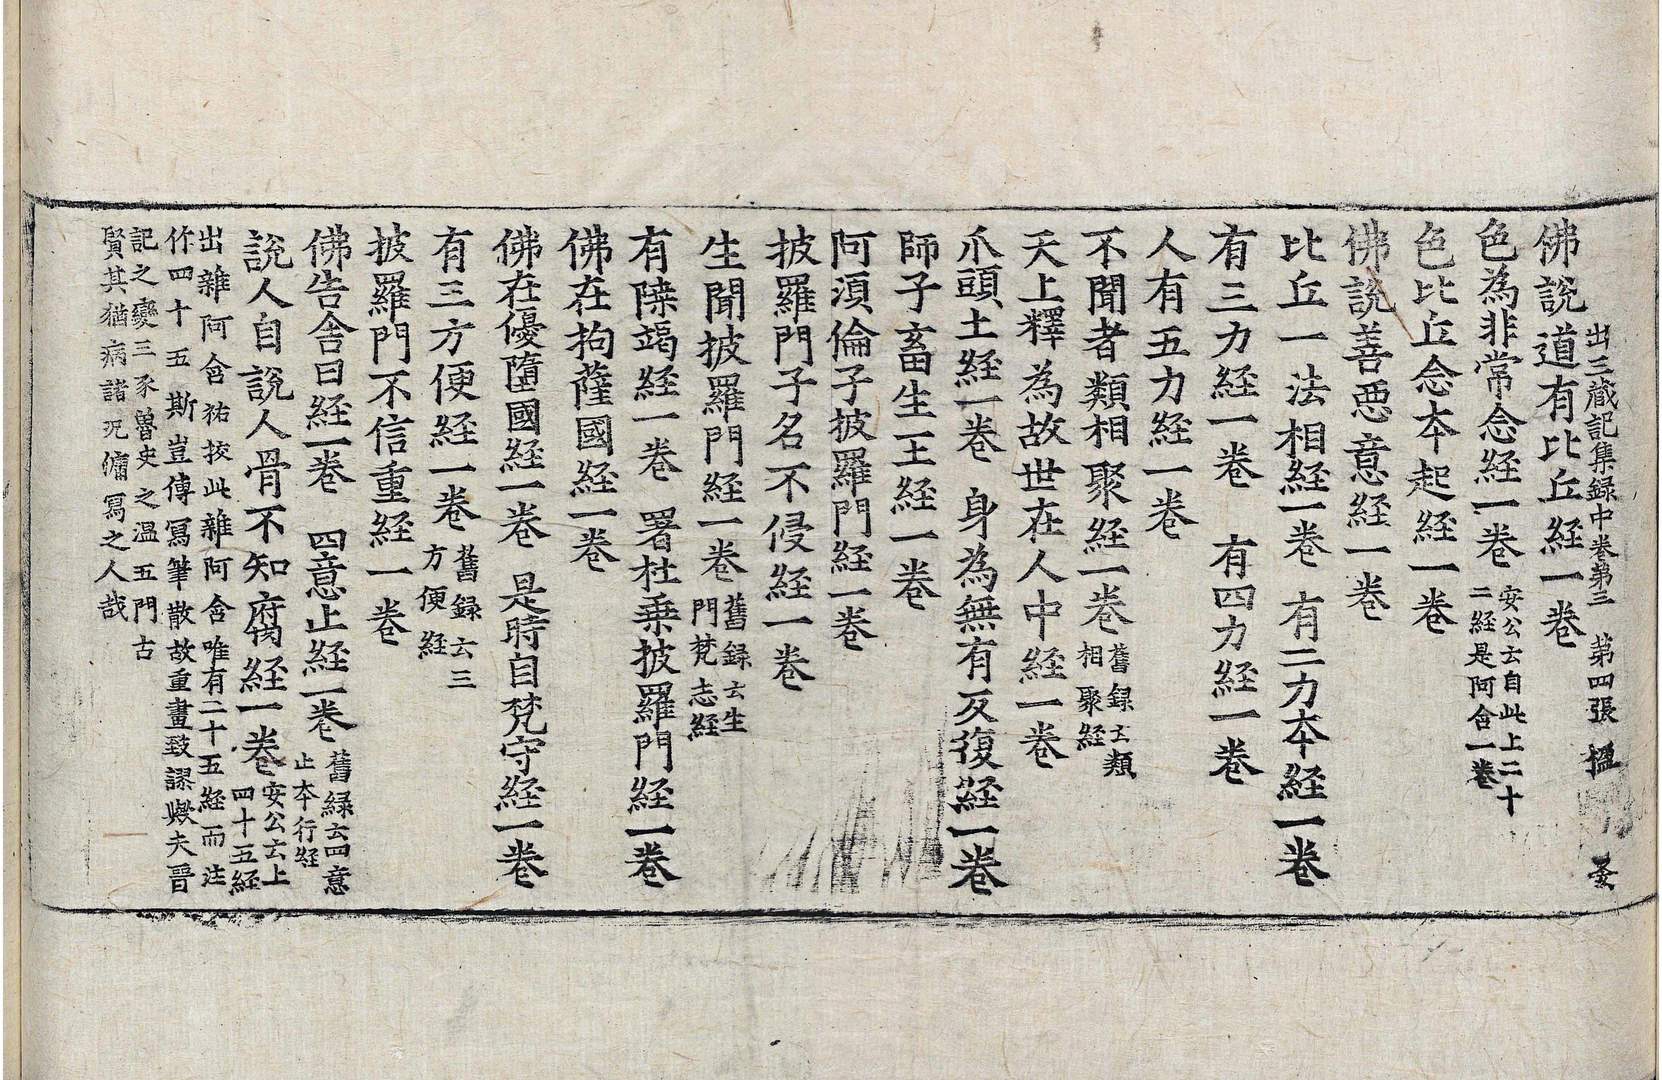 出三藏記集録中卷第三 第四張 楹
佛說道有比丘経一卷
色為非常念経一卷 安公云自此上二十
二経是阿含一卷
色比丘念夲起経一卷
佛說善惡意経一卷
比丘一法相経一卷 有二力夲経一卷
有三力経一卷 有四力経一卷
人有五力経一卷
不聞者類相聚経一卷 舊録云類
相聚経
天上釋為故世在人中経一卷
爪頭土経一卷 身為無有反復経一卷
師子畜生王経一卷
阿湏倫子披羅門経一卷
披羅門子名不侵経一卷
生聞披羅門経一卷 舊録云生
門梵志経
有𨻶竭経一卷 署杜乗披羅門経一卷
佛在拘薩國経一卷
佛在優墮國経一卷 是時自梵守経一卷
有三方便経一卷 舊録云三
方便経
披羅門不信重経一卷
佛告舍曰経一卷 四意止経一卷 舊緑云四意
止夲行経
說人自說人骨不知腐経一卷 安公云上
四十五経
出雜阿含祐挍此雜阿含唯有二十五経而注
作四十五斯豈傳冩筆散故重畫致謬歟夫晉
記之變三豕魯史之温五門古
賢其猶病諸况傭冩之人哉